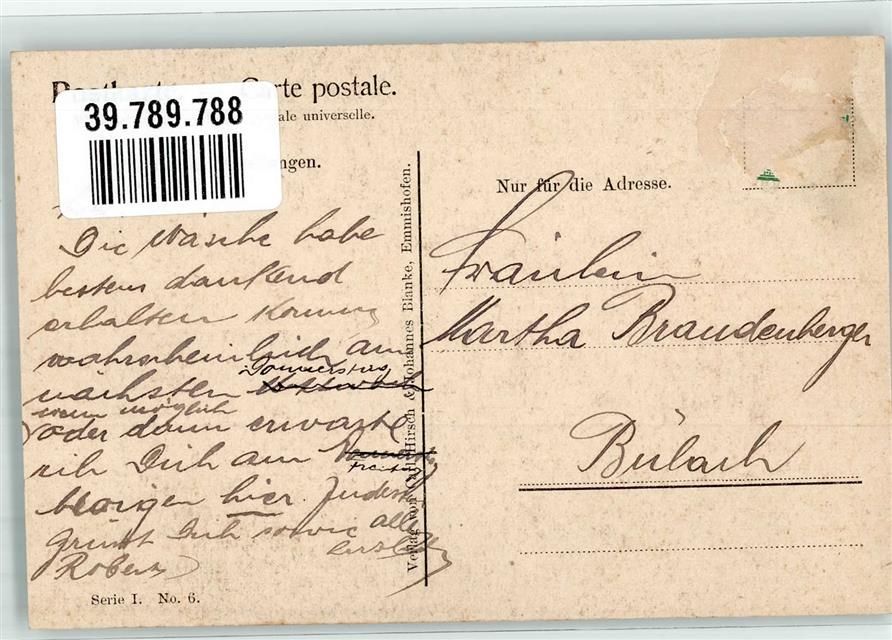 Carte postale.
39.789.788
ale universelle.
ngen.
Nur für die Adresse.
Die Wäsche habe
bestens dankend
erhalten komme
wahrscheinlich am
Donnerstag
nächsten Mittwoch
wenn möglich
oder dann erwarte
ich Dich am
Freitag
morgen hier. Indess
grüsst Dich sowie alle
herzlich
Robert
Verlag von Carl Hirsch & Johannes Blanke, Emmishofen.
Fräulein
Martha Brandenberger
Bülach
Serie I. No. 6.